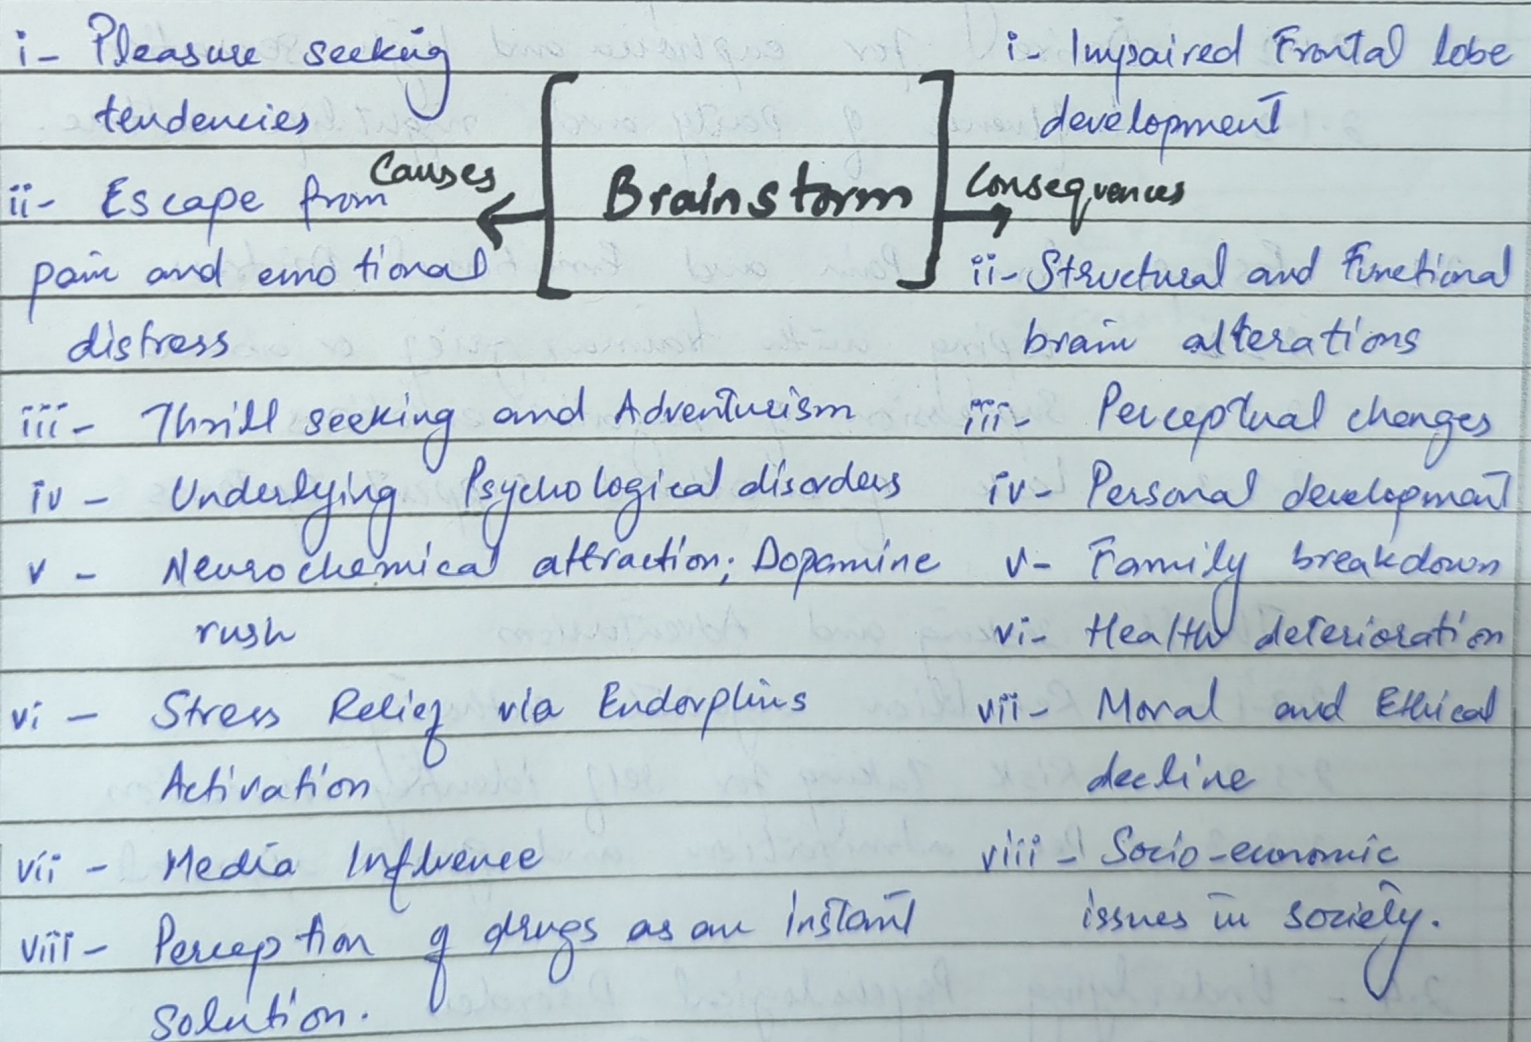 Brainstorm
Causes
i- Pleasure seeking
tendencies
ii- Escape from
pain and emotional
distress
iii- Thrill seeking and Adventurism
iv- Underlying Psychological disorders
v- Neurochemical attraction; Dopamine
rush
vi- Stress Relief via Endorphins
Activation
vii- Media Influence
viii- Perception of drugs as an instant
solution.
Consequences
i- Impaired Frontal lobe
development
ii- Structural and Functional
brain alterations
iii- Perceptual changes
iv- Personal development
v- Family breakdown
vi- Health deterioration
vii- Moral and Ethical
decline
viii- Socio-economic
issues in society.